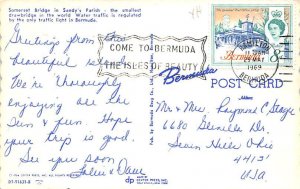 Somerset Bridge in Sandy's Parish - the smallest
drawbridge in the world. Water traffic is regulated
by the only traffic light in Bermuda.
Greetings from this
beautiful isle.
We're thoroughly
enjoying all the
sun & fun. Hope
your trip is good.
See you soon
& Dave
COME TO BERMUDA
THE ISLES OF BEAUTY
1969
BERMUDA
Bermuda
POST CARD
Mr & Mrs Raymond
6680
Seven Hills Ohio
USA